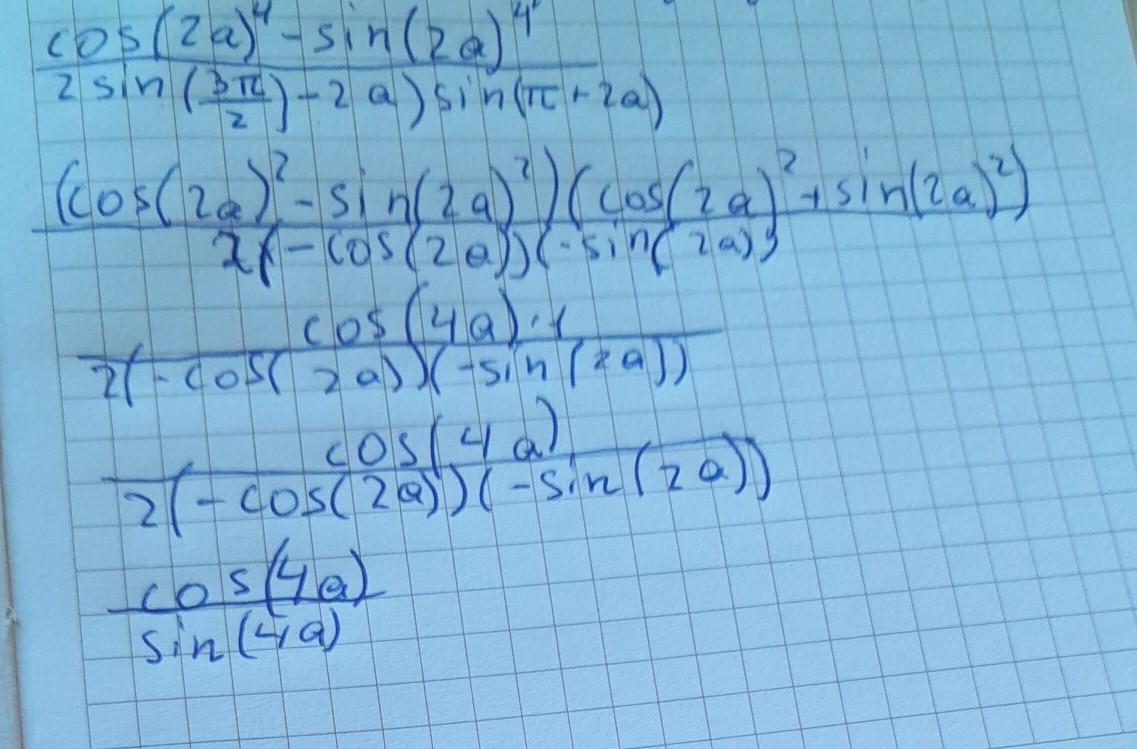 cos(2a)⁴ - sin(2a)⁴
2 sin(3π/2) - 2a) sin(π + 2a)
(cos(2a)² - sin(2a)²)(cos(2a)² + sin(2a)²)
2(-cos(2a))(-sin(2a))
cos(4a)·1
2(-cos(2a))(-sin(2a))
cos(4a)
2(-cos(2a))(-sin(2a))
cos(4a)
sin(4a)